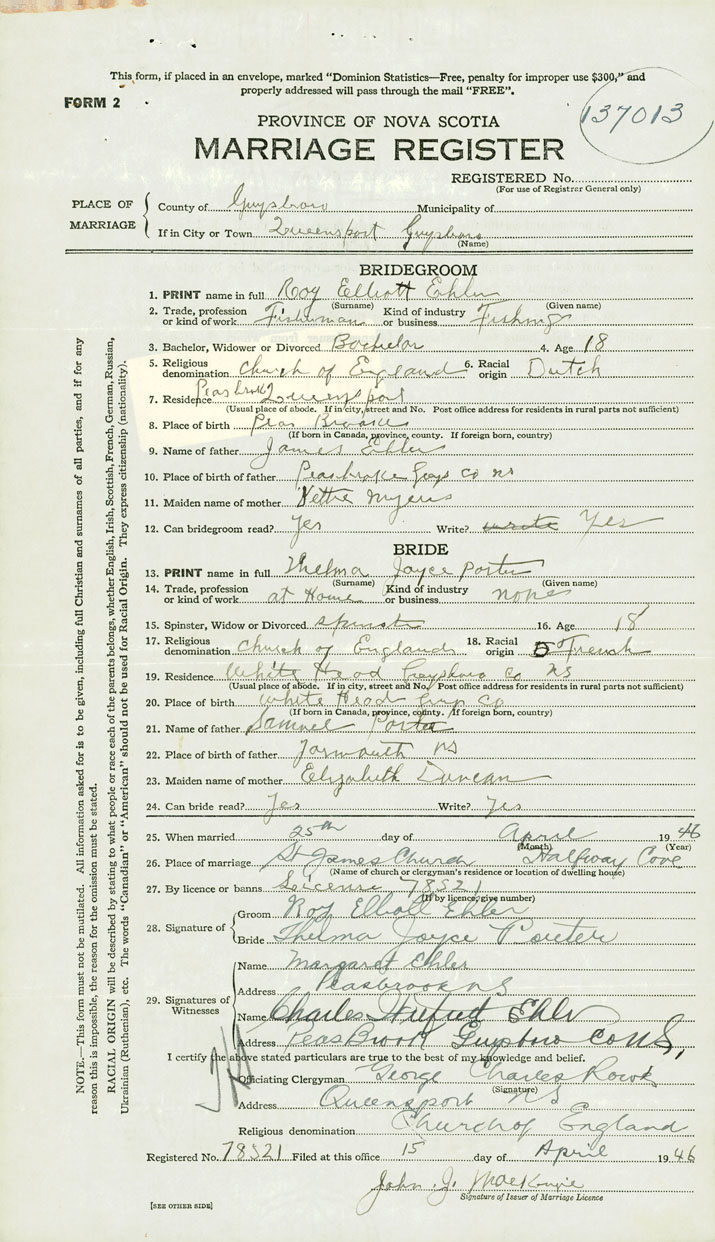 This form, if placed in an envelope, marked "Dominion Statistics—Free, penalty for improper use $300," and
properly addressed will pass through the mail "FREE".
FORM 2
137013
PROVINCE OF NOVA SCOTIA
MARRIAGE REGISTER
REGISTERED No.
(For use of Registrar General only)
PLACE OF MARRIAGE
County of Guysboro Municipality of
If in City or Town Queensport Guysboro
(Name)
BRIDEGROOM
1. PRINT name in full Roy Elliott Ehler
(Surname) (Given name)
2. Trade, profession or kind of work Fisherman Kind of industry or business Fishing
3. Bachelor, Widower or Divorced Bachelor 4. Age 18
5. Religious denomination Church of England 6. Racial origin Dutch
Peasbrook
7. Residence Queensport
(Usual place of abode. If in city, street and No. Post office address for residents in rural parts not sufficient)
8. Place of birth Peas Brooke
(If born in Canada, province, county. If foreign born, country)
9. Name of father James Ehler
10. Place of birth of father Peasbroke Guys Co NS
11. Maiden name of mother Nettie Myers
12. Can bridegroom read? Yes Write? wrote Yes
BRIDE
13. PRINT name in full Thelma Joyce Porter
(Surname) (Given name)
14. Trade, profession or kind of work at Home Kind of industry or business none
15. Spinster, Widow or Divorced spinster 16. Age 18
17. Religious denomination Church of England 18. Racial origin French
19. Residence White Head Guysboro Co NS
(Usual place of abode. If in city, street and No. Post office address for residents in rural parts not sufficient)
20. Place of birth White Head Guys Co
(If born in Canada, province, county. If foreign born, country)
21. Name of father Samuel Porter
22. Place of birth of father Yarmouth NS
23. Maiden name of mother Elizabeth Duncan
24. Can bride read? Yes Write? Yes
25. When married 25th day of April 1946
(Month) (Year)
26. Place of marriage St James Church Halfway Cove
(Name of church or clergyman's residence or location of dwelling house)
27. By licence or banns Licence 78521
(If by licence, give number)
28. Signature of
Groom Roy Elliott Ehler
Bride Thelma Joyce Porter
29. Signatures of Witnesses
Name Margaret Ehler
Address Peasbrook NS
Name Charles Ehler
Address Peas Brook Guysboro Co NS,
I certify the above stated particulars are true to the best of my knowledge and belief.
Officiating Clergyman George Charles
(Signature)
Address Queensport NS
Religious denomination Church of England
Registered No. 78521 Filed at this office 15 day of April 1946
John J. MacKenzie
Signature of Issuer of Marriage Licence
[SEE OTHER SIDE]
NOTE.—This form must not be mutilated. All information asked for is to be given, including full Christian and surnames of all parties, and if for any
reason this is impossible, the reason for the omission must be stated.
RACIAL ORIGIN will be described by stating to what people or race each of the parents belongs, whether English, Irish, Scottish, French, German, Russian,
Ukrainian (Ruthenian), etc. The words "Canadian" or "American" should not be used for Racial Origin. They express citizenship (nationality).